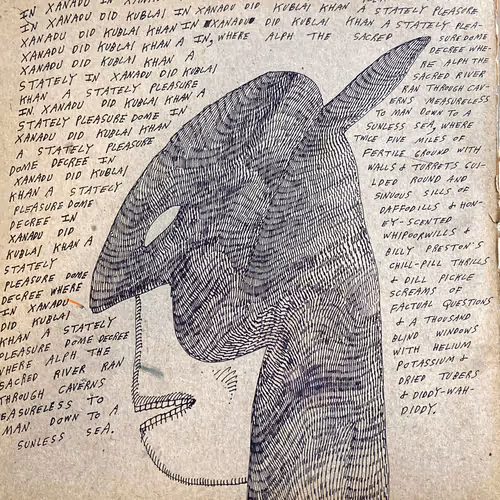 IN XANADU IN XANADU
IN XANADU DID KUBLAI IN XANADU DID KUBLAI KHAN A STATELY PLEASURE
XANADU DID KUBLAI KHAN IN XANADU DID KUBLAI KHAN A STATELY PLEA-
XANADU DID KUBLAI KHAN A IN, WHERE ALPH THE SACRED
STATELY IN XANADU DID KUBLAI
KHAN A STATELY PLEASURE
IN XANADU DID KUBLAI KHAN A
STATELY PLEASURE DOME IN
XANADU DID KUBLAI KHAN
A STATELY PLEASURE
DOME DECREE IN
XANADU DID KUBLAI
KHAN A STATELY
PLEASURE DOME
DECREE IN
XANADU DID
KUBLAI KHAN A
STATELY
PLEASURE DOME
DECREE WHERE
IN XANADU
DID KUBLAI
KHAN A STATELY
PLEASURE DOME DECREE
WHERE ALPH THE
SACRED RIVER RAN
THROUGH CAVERNS
EASURELESS TO
MAN DOWN TO A
SUNLESS SEA.
SURE DOME
DECREE WHE-
RE ALPH THE
SACRED RIVER
RAN THROUGH CAV-
ERNS MEASURELESS
TO MAN DOWN TO A
SUNLESS SEA, WHERE
TWICE FIVE MILES OF
FERTILE GROUND WITH
WALLS & TURRETS GUI-
LDED ROUND AND
SINUOUS SILLS OF
DAFFODILLS & HON-
EY-SCENTED
WHIPOORWILLS
BILLY PRESTON'S
CHILL-PILL THRILLS
& DILL PICKLE
SCREAMS OF
FACTUAL QUESTIONS
& A THOUSAND
BLIND WINDOWS
WITH HELIUM
POTASSIUM &
DRIED TUBERS
& DIDDY-WAH-
DIDDY.